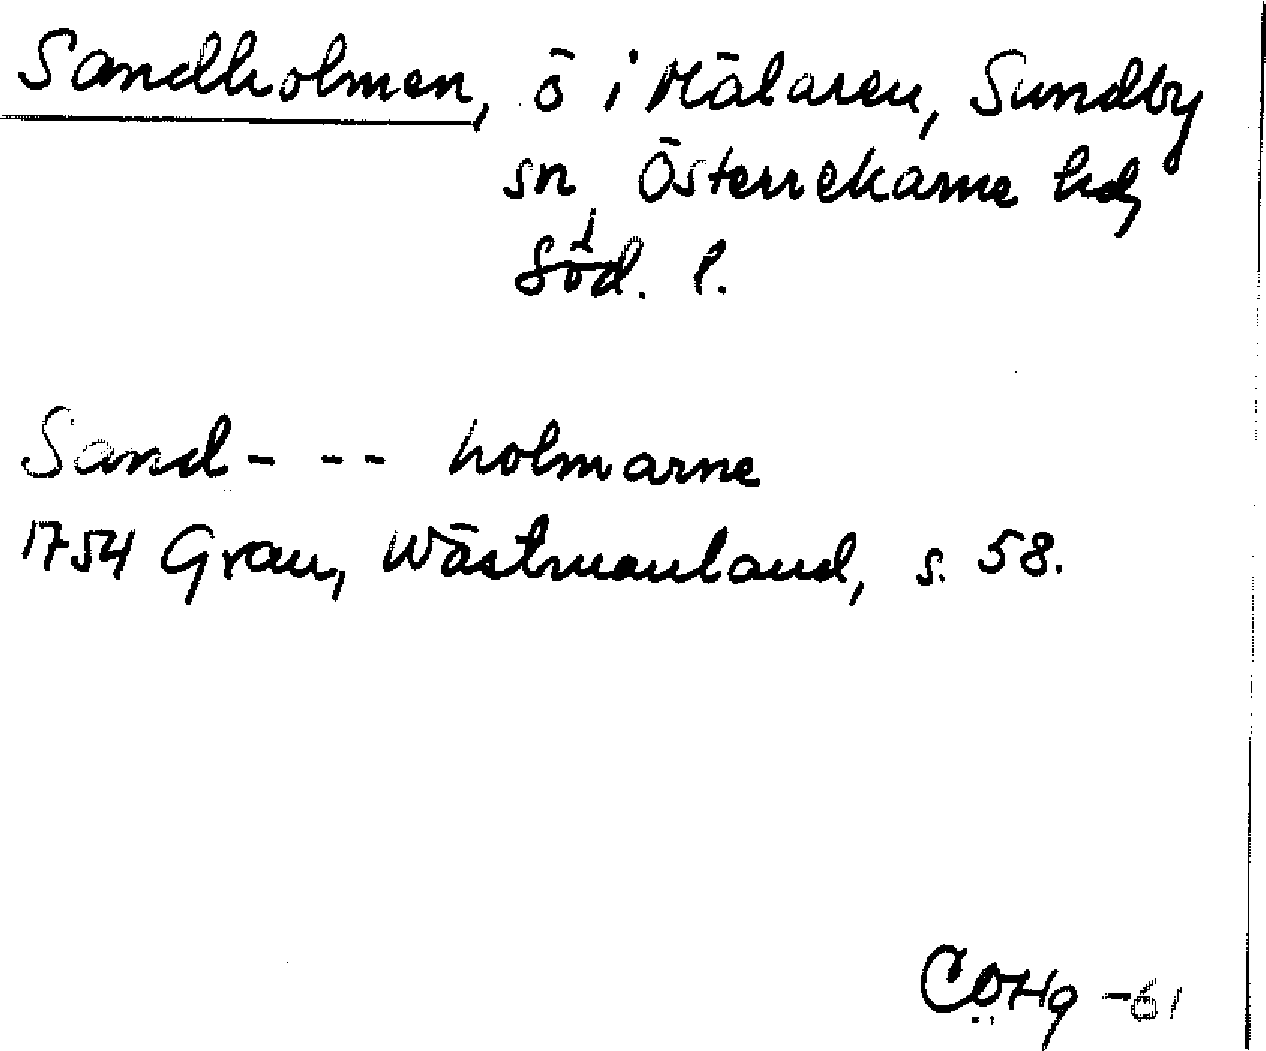 Sandholmen, ö i Mälaren, Sundby
sn, Österrekarne hd,
Söd. l.
Sand- -- holmarne
1754 Grau, Wästmanland, s. 58.
CÖHg -61